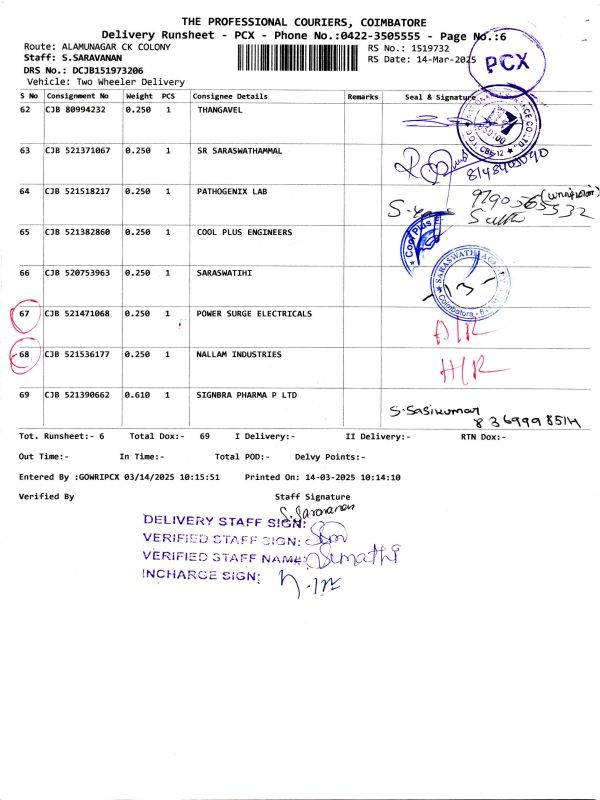 THE PROFESSIONAL COURIERS, COIMBATORE
Delivery Runsheet - PCX - Phone No.:0422-3505555 - Page No.:6
Route: ALAMUNAGAR CK COLONY
RS No.: 1519732
Staff: S.SARAVANAN
RS Date: 14-Mar-2025
PCX
DRS No.: DCJB151973206
Vehicle: Two Wheeler Delivery
S No Consignment No Weight PCS Consignee Details Remarks Seal & Signature
62 CJB 80994232 0.250 1 THANGAVEL
CBE-12
63 CJB 521371067 0.250 1 SR SARASWATHAMMAL
8148403040
64 CJB 521518217 0.250 1 PATHOGENIX LAB
9790365532
65 CJB 521382860 0.250 1 COOL PLUS ENGINEERS
Cool Plus
66 CJB 520753963 0.250 1 SARASWATIHI
-13-
67 CJB 521471068 0.250 1 POWER SURGE ELECTRICALS
D/R
68 CJB 521536177 0.250 1 NALLAM INDUSTRIES
H/R
69 CJB 521390662 0.610 1 SIGNBRA PHARMA P LTD
S.Sasikumar
8369998514
Tot. Runsheet:- 6 Total Dox:- 69 I Delivery:- II Delivery:- RTN Dox:-
Out Time:- In Time:- Total POD:- Delvy Points:-
Entered By :GOWRIPCX 03/14/2025 10:15:51 Printed On: 14-03-2025 10:14:10
Verified By Staff Signature
S. Saravanan
DELIVERY STAFF SIGN:
VERIFIED STAFF SIGN:
VERIFIED STAFF NAME: Sumathi
INCHARGE SIGN: